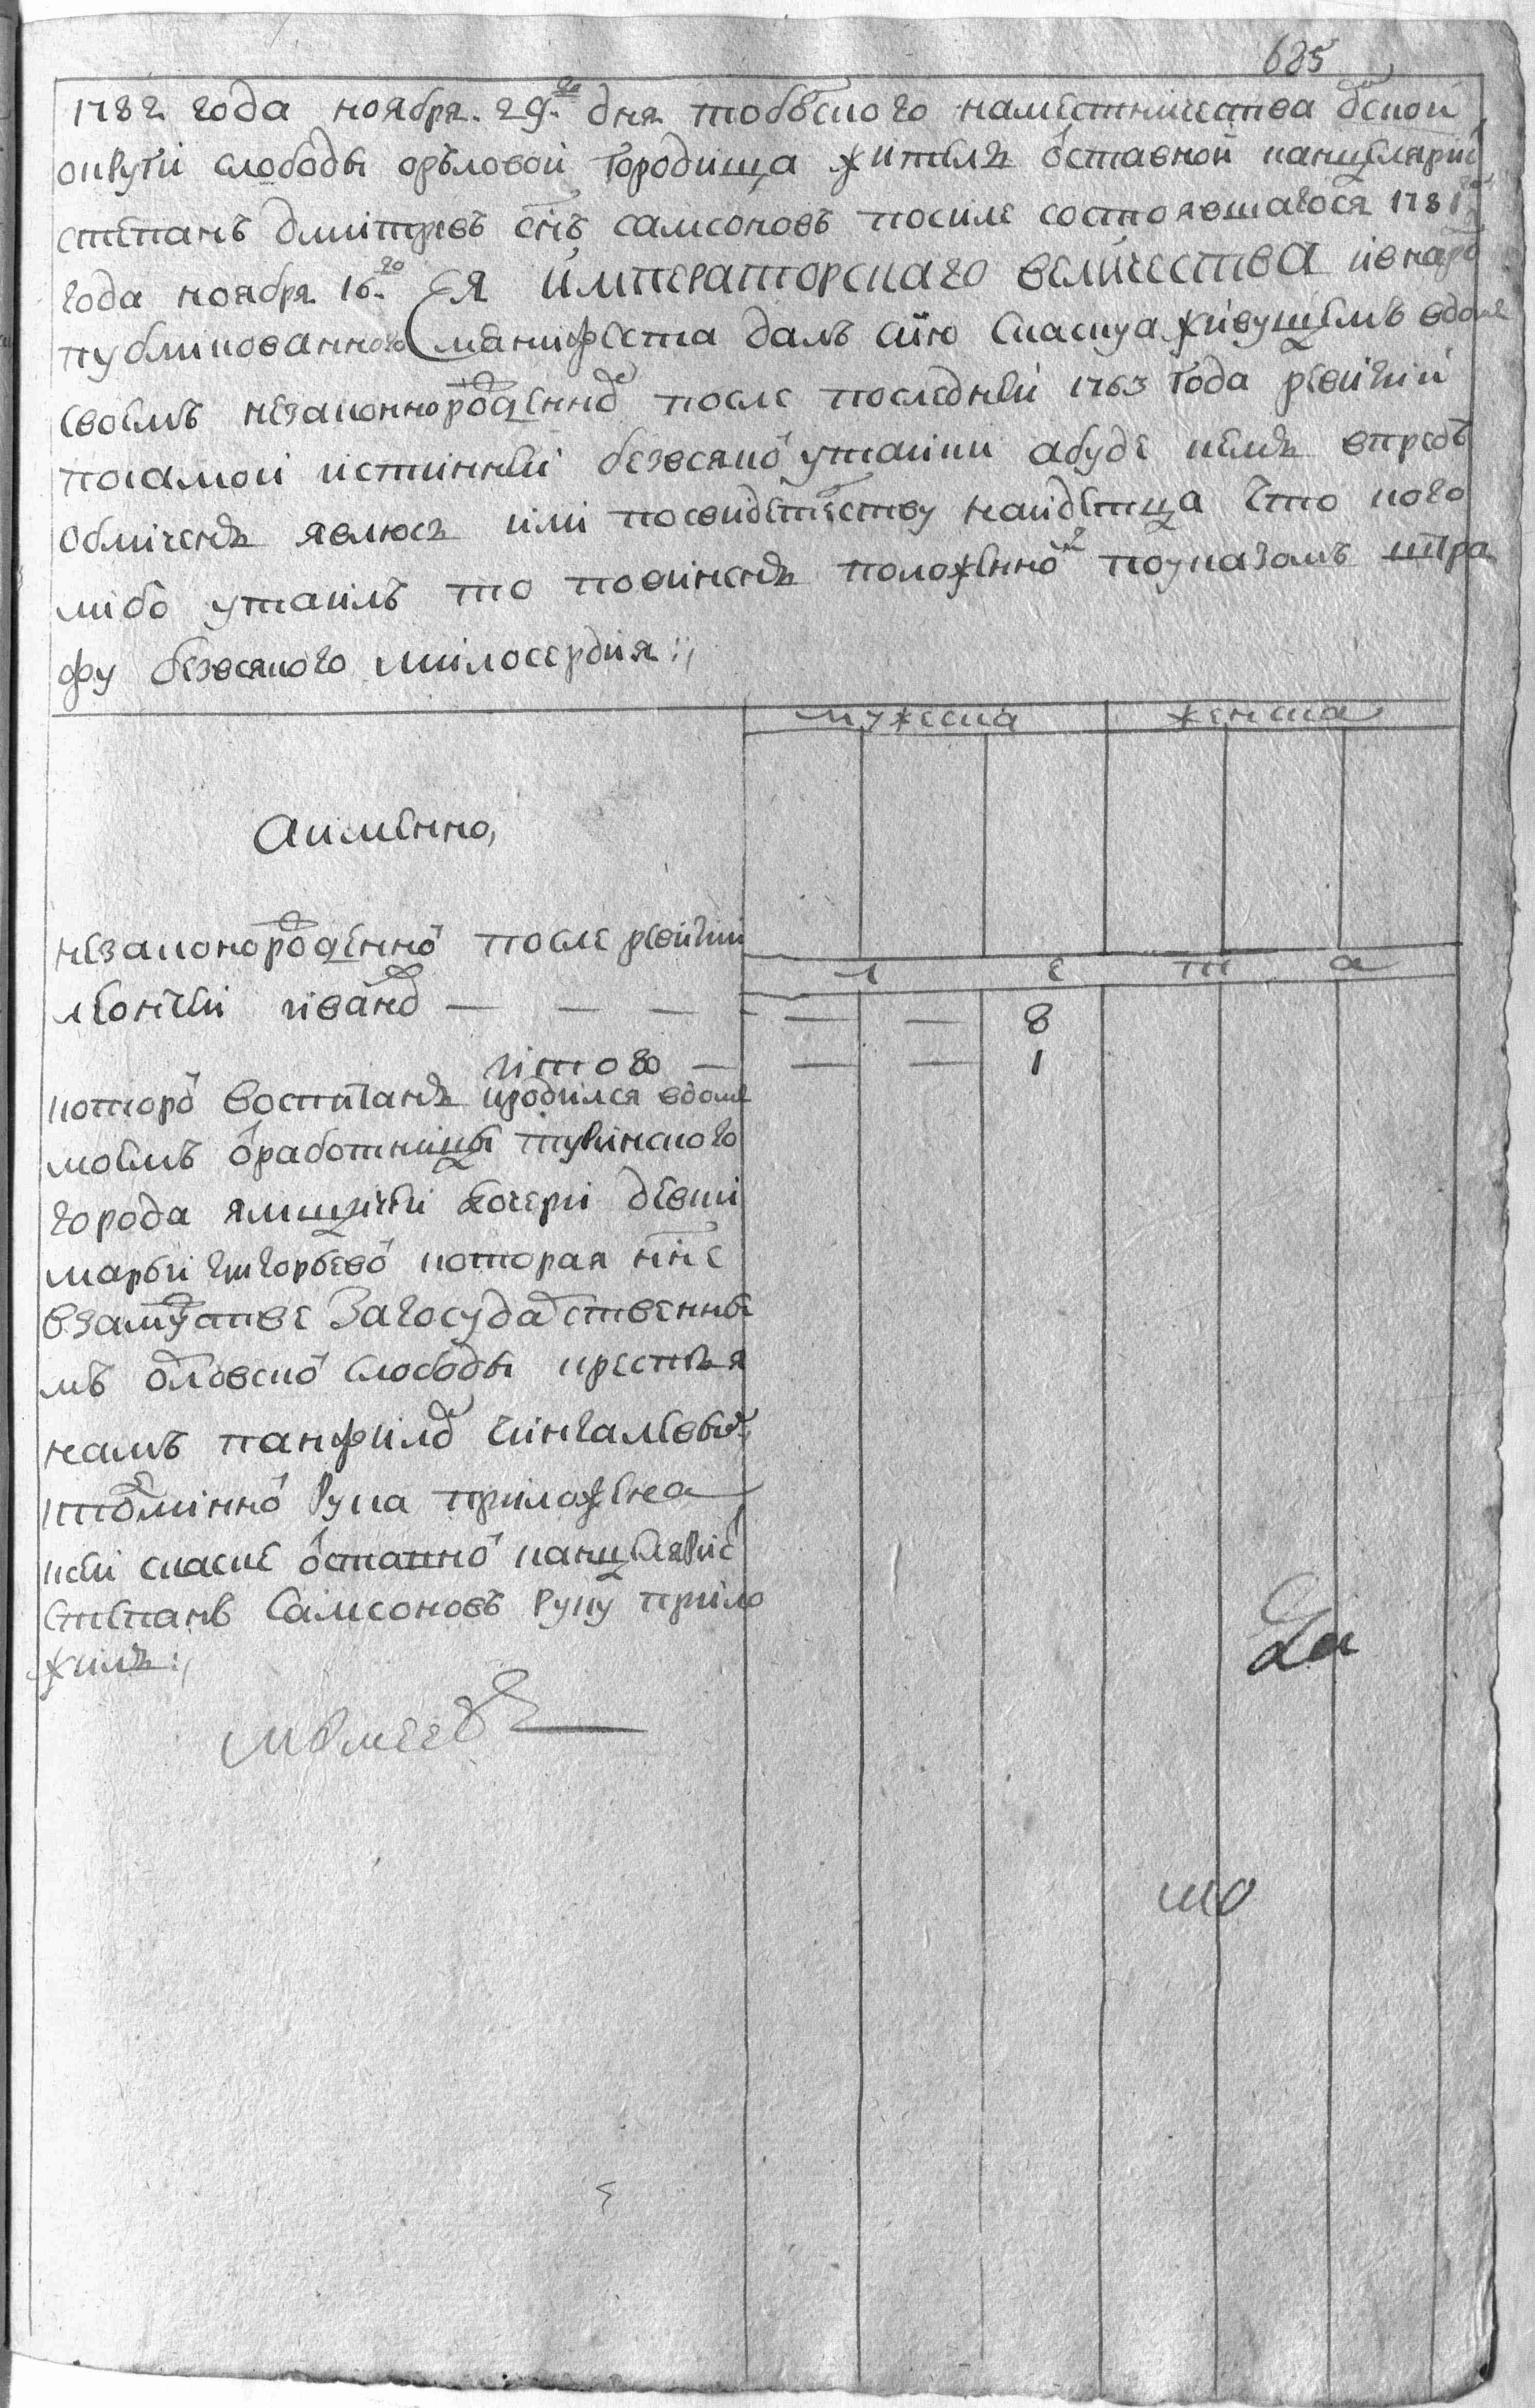 685
1782 года ноября 29го дня тобολского наместничества
округи слободы орьловой городища жителъ отставной канцелярии
степанъ дмитревъ снъ самсоновъ посиле состоявшагося 1781го
года ноября 16го Ея императорскаго величества ивнарο
публикованного манифеста далъ сию скаску а живущемъ вдоме
своемъ незаконнорожденномъ после последней 1763 года ревизии
посамои истинней безвсякои утаики а буде кемъ впредъ
обличенъ явлюсъ или посвидетелству наидетца что кого
либо утаилъ то повиненъ положенного поуказомъ штра
фу безвсякого милосердия
мужеска женска
Аименно,
незаконорожденной после ревизии
л е т а
леонтеи иванов — — — — — 8
итого — — — 1
которои воспитанъ иродился вдоме
моемъ от работницы туринского
города ямщичеи дочери девки
марьи григорьевои которая нне
взамужстве Загосударственны
мъ слободы крестья
номъ панфилом
рука приложена
ксеи скаске отставнои канцелярис
Степанъ Самсоновъ Руку прило
жилъ